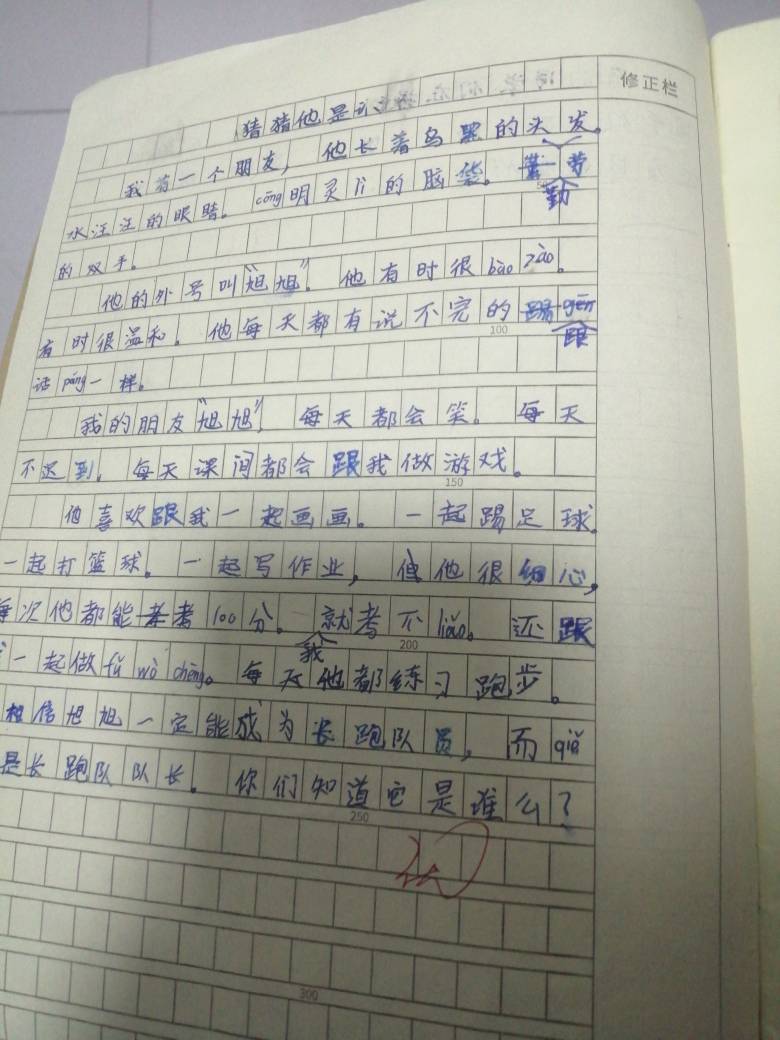 修正栏
猜猜他是
我有一个朋友，他长着乌黑的头发。
水汪汪的眼睛。cōng明灵lì的脑袋。勤劳
的双手。
他的外号叫“旭旭”。他有时很bào zào。
有时很温和。他每天都有说不完的
跟
100
话páng一样。
我的朋友“旭旭”，每天都会笑。每天
不迟到，每天课间都会跟我做游戏。
150
他喜欢跟我一起画画。一起踢足球。
一起打篮球。一起写作业，但他很细心，
每次他都能考100分。我就考不liǎo。还跟
200
一起做fǔ wò chēng。每天他都练习跑步。
相信旭旭一定能成为长跑队员，而qiě
是长跑队队长。你们知道它是谁么？
250
300